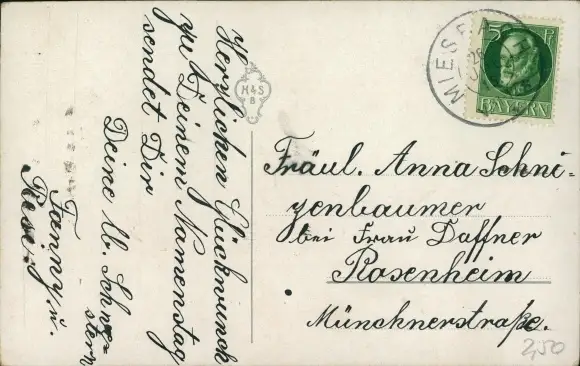 Herzlichen Glückwunsch
zu Deinem Namenstag
sendet Dir
Deine lb. Schwe-
stern
Fanny u.
Resi.
H&S
B
MIESB
5 Pf
BAYERN
Fräul. Anna Schni-
zenbaumer
bei Frau Daffner
Rosenheim
Münchnerstraße.
2,50